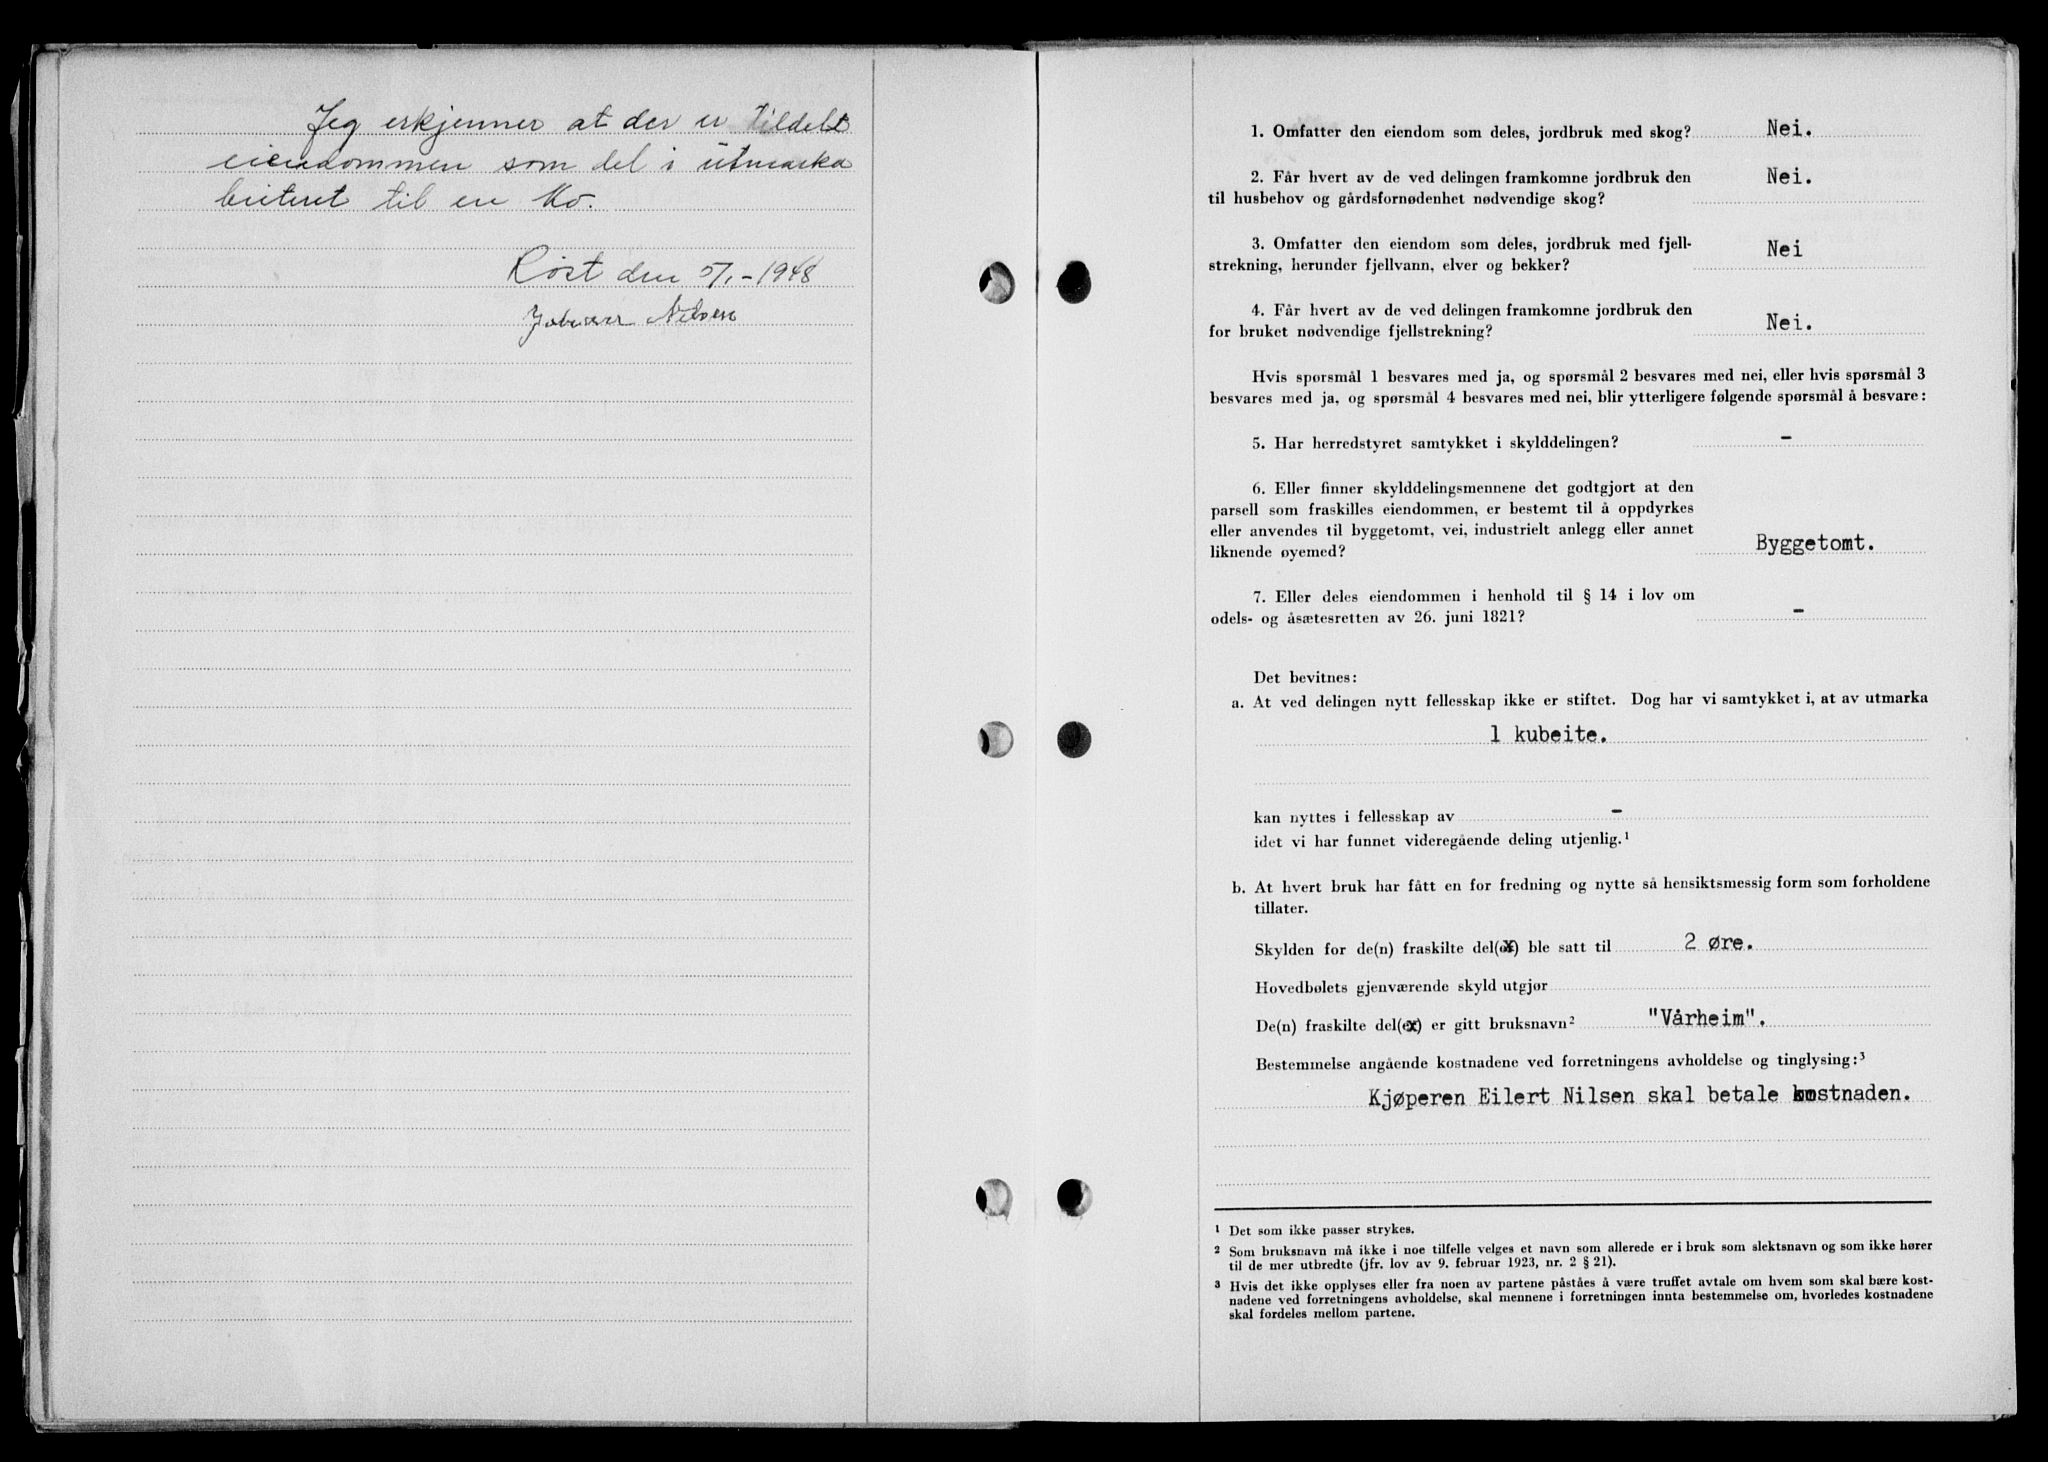 Jeg erkjenner at der er tildelt
eiendommen som del i utmarka
beiteret til en ko.
Røst den 5/1-1948
Nilsen
1. Omfatter den eiendom som deles, jordbruk med skog? Nei.
2. Får hvert av de ved delingen framkomne jordbruk den
til husbehov og gårdsfornødenhet nødvendige skog? Nei.
3. Omfatter den eiendom som deles, jordbruk med fjell-
strekning, herunder fjellvann, elver og bekker? Nei
4. Får hvert av de ved delingen framkomne jordbruk den
for bruket nødvendige fjellstrekning? Nei.
Hvis spørsmål 1 besvares med ja, og spørsmål 2 besvares med nei, eller hvis spørsmål 3
besvares med ja, og spørsmål 4 besvares med nei, blir ytterligere følgende spørsmål å besvare:
5. Har herredstyret samtykket i skylddelingen? -
6. Eller finner skylddelingsmennene det godtgjort at den
parsell som fraskilles eiendommen, er bestemt til å oppdyrkes
eller anvendes til byggetomt, vei, industrielt anlegg eller annet
liknende øyemed? Byggetomt.
7. Eller deles eiendommen i henhold til § 14 i lov om
odels- og åsætesretten av 26. juni 1821? -
Det bevitnes:
a. At ved delingen nytt fellesskap ikke er stiftet. Dog har vi samtykket i, at av utmarka
1 kubeite.
kan nyttes i fellesskap av -
idet vi har funnet videregående deling utjenlig.¹
b. At hvert bruk har fått en for fredning og nytte så hensiktsmessig form som forholdene
tillater.
Skylden for de(n) fraskilte del(er) ble satt til 2 øre.
Hovedbølets gjenværende skyld utgjør
De(n) fraskilte del(er) er gitt bruksnavn² "Vårheim".
Bestemmelse angående kostnadene ved forretningens avholdelse og tinglysing:³
Kjøperen Eilert Nilsen skal betale kostnaden.
¹ Det som ikke passer strykes.
² Som bruksnavn må ikke i noe tilfelle velges et navn som allerede er i bruk som slektsnavn og som ikke hører
til de mer utbredte (jfr. lov av 9. februar 1923, nr. 2 § 21).
³ Hvis det ikke opplyses eller fra noen av partene påståes å være truffet avtale om hvem som skal bære kost-
nadene ved forretningens avholdelse, skal mennene i forretningen innta bestemmelse om, hvorledes kostnadene
skal fordeles mellom partene.